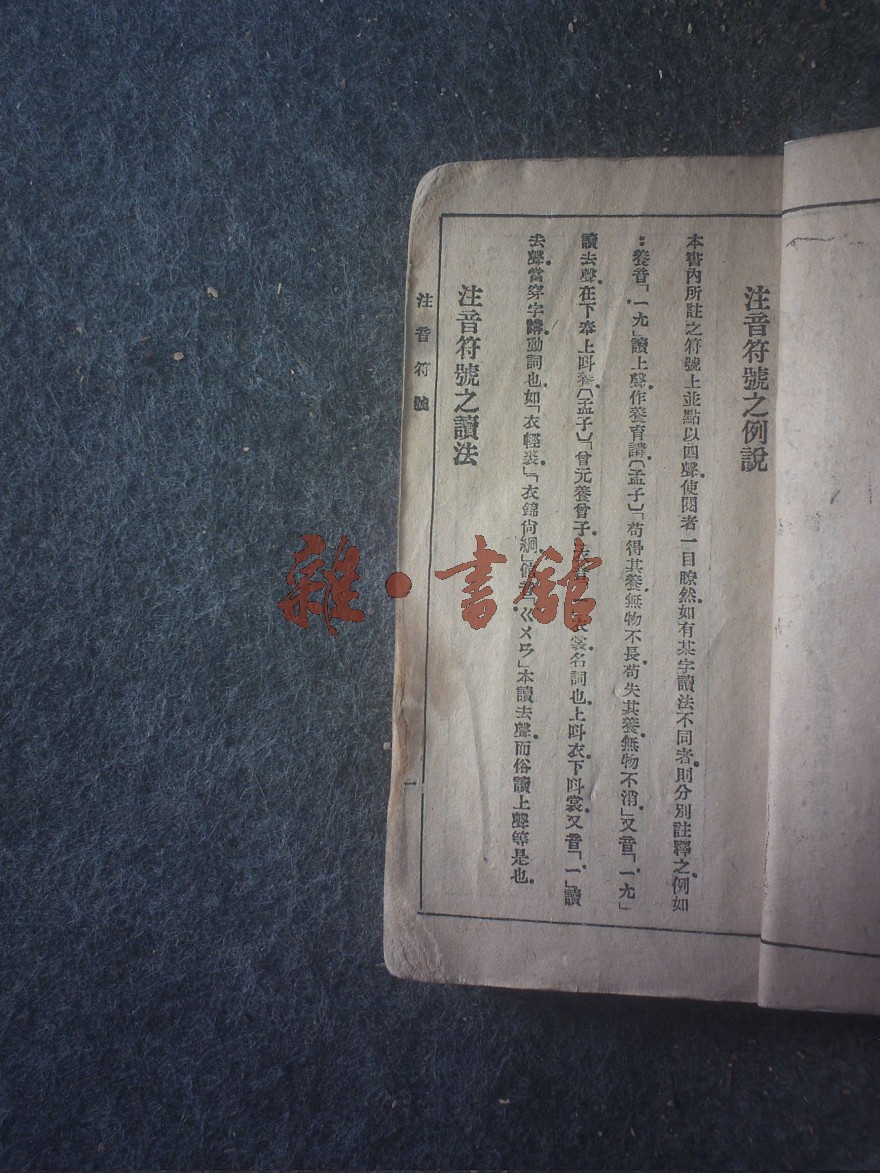 注音符號之例說
本書內所註之符號上並點以四聲使閱者一目瞭然如有某字讀法不同者則分別註釋之例如
：養音「ㄧㄤ」讀上聲作養育講〔孟子〕「苟得其養無物不長苟失其養無物不消」又音「ㄧㄤ」
讀去聲在下奉上呌養〔孟子〕「曾元養曾子衣裳名詞也上呌衣下呌裳又音「ㄧ」讀
去聲當穿字講動詞也如「衣輕裘」「衣錦尙絅」音「ㄍㄨㄢ」本讀去聲而俗讀上聲等是也
注音符號之讀法
注音符號
一
雜·書館